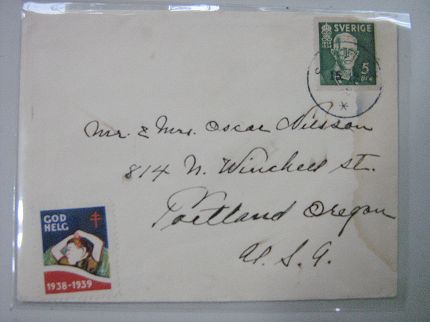 SVERIGE
5
ÖRE
15
Mr. & Mrs. Oscar Nilsson
814 N. Winchell St.
Portland Oregon
U. S. A.
GOD
HELG
1938-1939